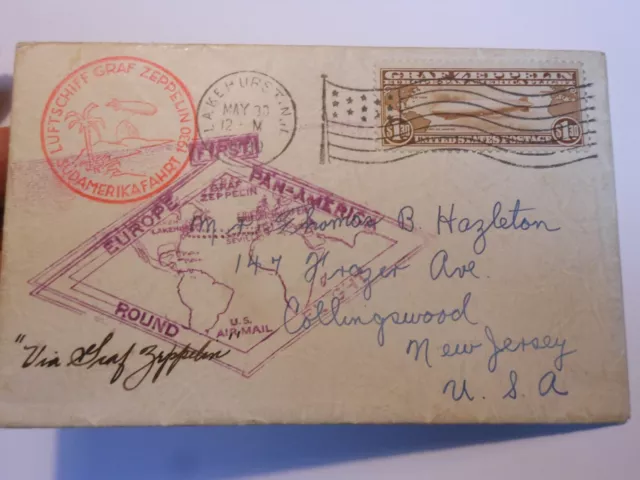 LUFTSCHIFF GRAF ZEPPELIN 1930
SÜDAMERIKAFAHRT
LAKEHURST, N.J.
MAY 30
12 - M
GRAF ZEPPELIN
$1.30 $1.30
UNITED STATES POSTAGE
FIRST
EUROPE PAN-AMERICA
ROUND
GRAF
ZEPPELIN
LAKEHURST
SEVILLE
U.S.
AIR MAIL
Mr. Thomas B. Hazleton
147 Frazer Ave.
Collingswood
New Jersey
U. S. A
"Via Graf Zeppelin